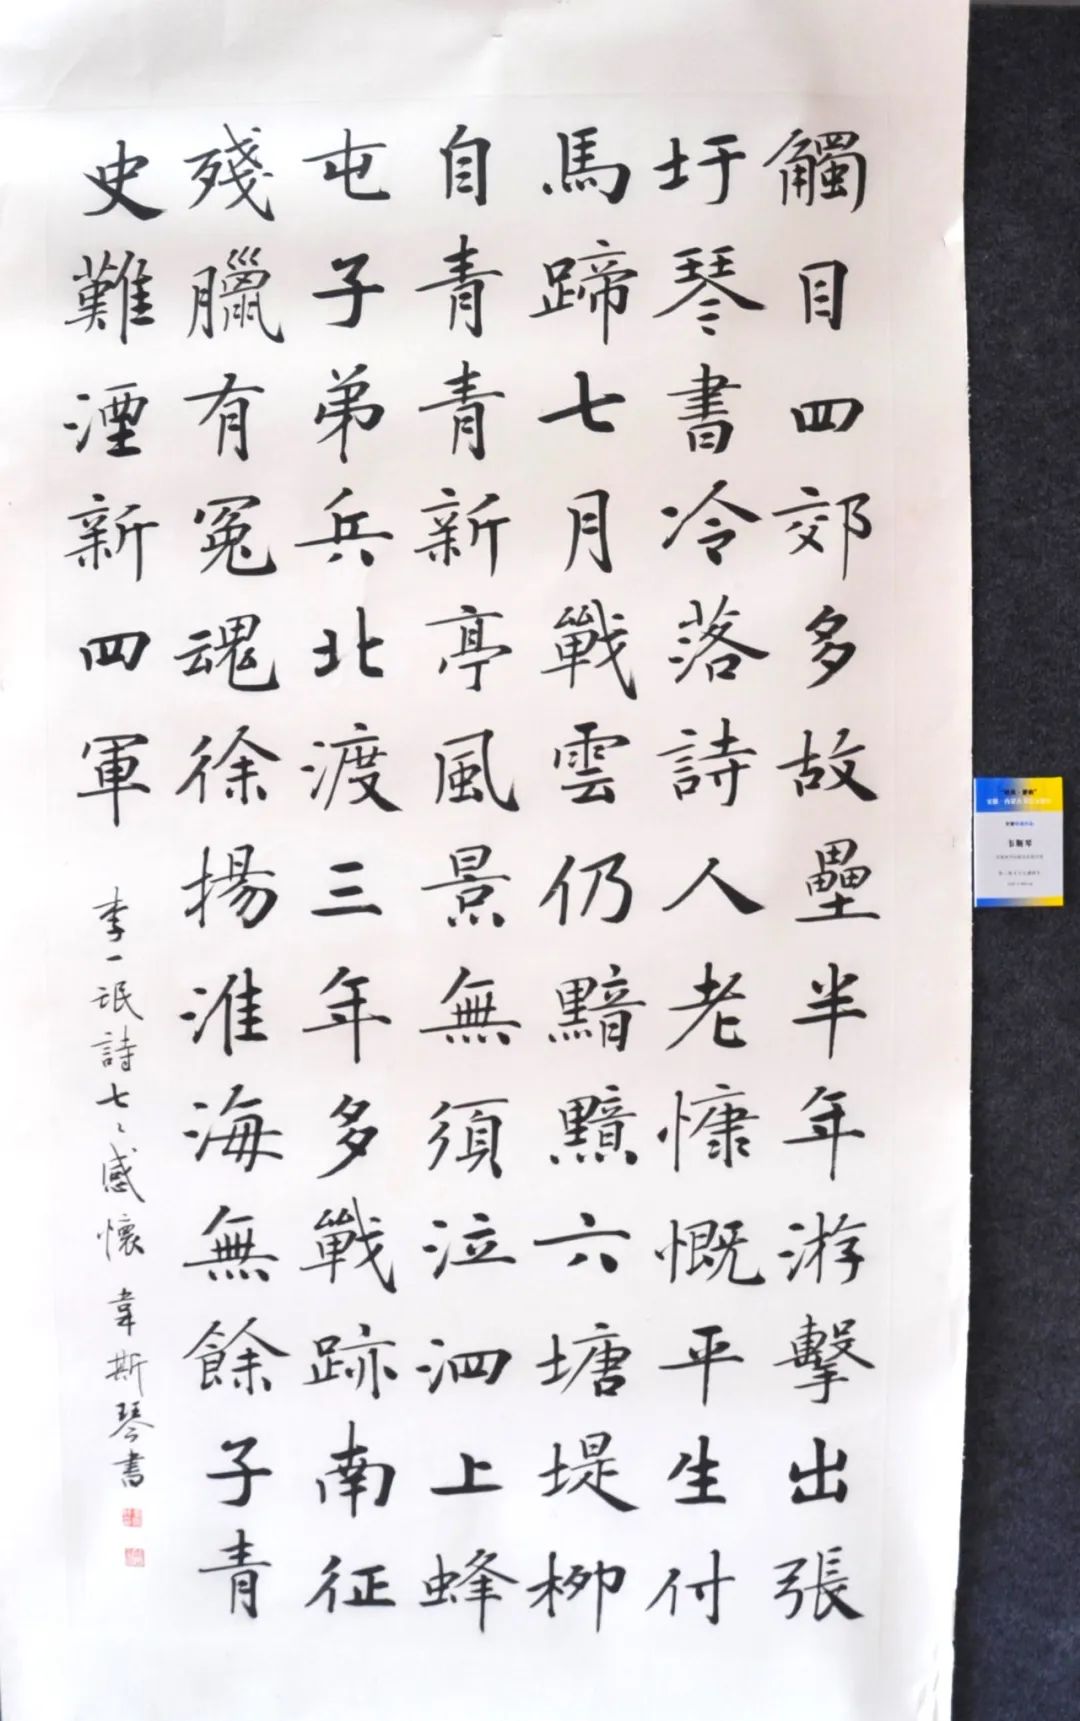 觸目四郊多故壘半年游擊出張
圩琴書冷落詩人老慷慨平生付
馬蹄七月戰雲仍黯黯六塘堤柳
自青青新亭風景無須泣泗上蜂
屯子弟兵北渡三年多戰跡南征
殘臘有冤魂徐揚淮海無餘子青
史難湮新四軍
李一氓詩七七感懷 韋斯琴書
韦斯琴